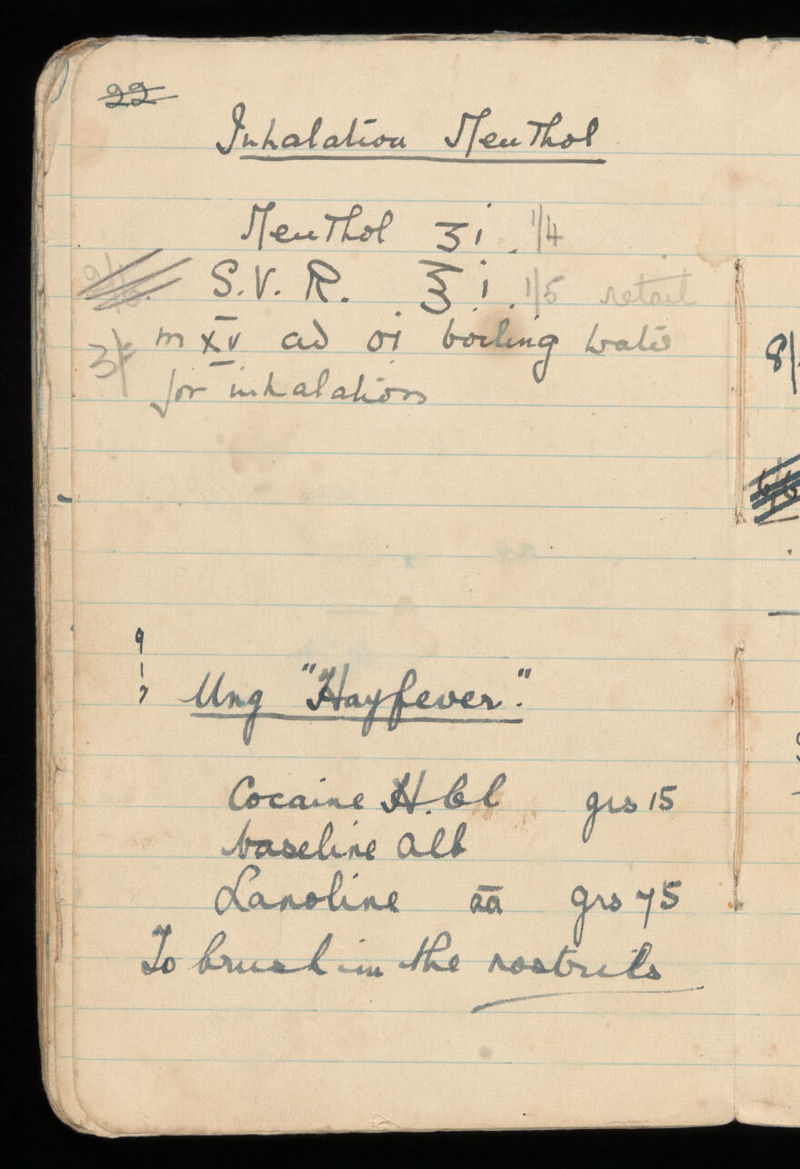 22
Inhalation Menthol
Menthol ʒi. 1/4
S.V.R. ℥i. 1/5 retail
3/ m xv ad oi boiling water
for inhalations
Ung "Hayfever".
Cocaine H.Cl grs 15
Vaseline Alb
Lanoline āā grs 75
To brush in the nostrils
8/